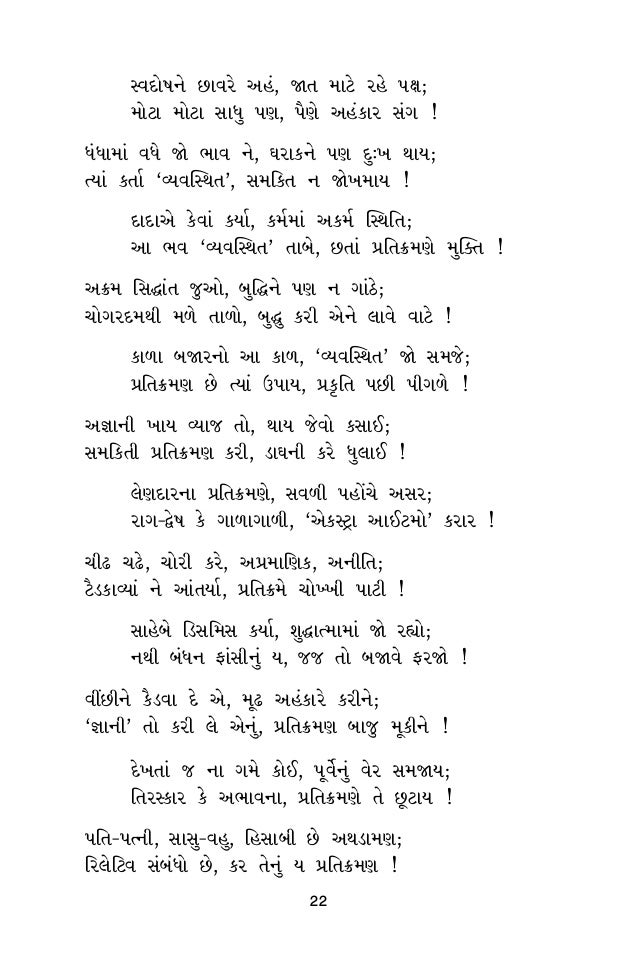 સ્વદોષને છાવરે અહં, જાત માટે રહે પક્ષ;
મોટા મોટા સાધુ પણ, પૈણે અહંકાર સંગ !
ધંધામાં વધે જો ભાવ ને, ઘરાકને પણ દુઃખ થાય;
ત્યાં કર્તા ‘વ્યવસ્થિત’, સમકિત ન જોખમાય !
દાદાએ કેવાં કર્યા, કર્મમાં અકર્મ સ્થિતિ;
આ ભવ ‘વ્યવસ્થિત’ તાબે, છતાં પ્રતિક્રમણે મુક્તિ !
અક્રમ સિદ્ધાંત જુઓ, બુદ્ધિને પણ ન ગાંઠે;
ચોગરદમથી મળે તાળો, બુદ્ધુ કરી એને લાવે વાટે !
કાળા બજારનો આ કાળ, ‘વ્યવસ્થિત’ જો સમજે;
પ્રતિક્રમણ છે ત્યાં ઉપાય, પ્રકૃતિ પછી પીગળે !
અજ્ઞાની ખાય વ્યાજ તો, થાય જેવો કસાઈ;
સમકિતી પ્રતિક્રમણ કરી, ડાઘની કરે ધુલાઈ !
લેણદારના પ્રતિક્રમણે, સવળી પહોંચે અસર;
રાગ-દ્વેષ કે ગાળાગાળી, ‘એકસ્ટ્રા આઈટમો’ કરાર !
ચીઢ ચઢે, ચોરી કરે, અપ્રમાણિક, અનીતિ;
ટૈડકાવ્યાં ને આંતર્યા, પ્રતિક્રમે ચોખ્ખી પાટી !
સાહેબે ડિસમિસ કર્યા, શુદ્ધાત્મામાં જો રહ્યો;
નથી બંધન ફાંસીનું ય, જજ તો બજાવે ફરજો !
વીંછીને કૈડવા દે એ, મૂઢ અહંકારે કરીને;
‘જ્ઞાની’ તો કરી લે એનું, પ્રતિક્રમણ બાજુ મૂકીને !
દેખતાં જ ના ગમે કોઈ, પૂર્વેનું વેર સમજાય;
તિરસ્કાર કે અભાવના, પ્રતિક્રમણે તે છૂટાય !
પતિ-પત્ની, સાસુ-વહુ, હિસાબી છે અથડામણ;
રિલેટિવ સંબંધો છે, કર તેનું ય પ્રતિક્રમણ !
22